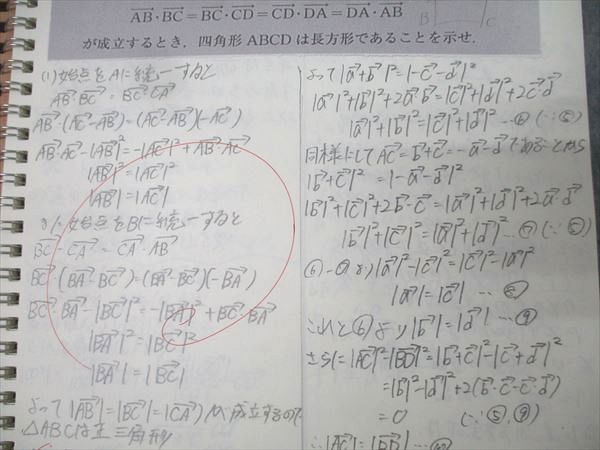 AB・BC = BC・CD = CD・DA = DA・AB
B C
が成立するとき，四角形ABCDは長方形であることを示せ．
(1) 始点をAに統一すると
AB・BC = BC・CA
AB・(AC-AB) = (AC-AB)(-AC)
AB・AC-|AB|² = -|AC|²+AB・AC
|AB|² = |AC|²
|AB| = |AC|
また始点をBに統一すると
BC・CA = CA・AB
BC・(BA-BC) = (BA-BC)(-BA)
BC・BA-|BC|² = -|BA|²+BC・BA
|BA|² = |BC|²
|BA| = |BC|
よって |AB| = |BC| = |CA| が成立するので
△ABCは正三角形
よって |a+b|² = |-c-d|²
|a|²+|b|²+2a・b = |c|²+|d|²+2c・d
|a|²+|b|² = |c|²+|d|² … ⑥ (∵⑤)
同様にして AC = b+c = -a-d であることから
|b+c|² = |-a-d|²
|b|²+|c|²+2b・c = |a|²+|d|²+2a・d
|b|²+|c|² = |a|²+|d|² … ⑦ (∵⑤)
⑥-⑦より |a|²-|c|² = |c|²-|a|²
|a| = |c| … ⑧
これと⑥より |b| = |d| … ⑨
さらに |AC|²-|BD|² = |b+c|²-|c+d|²
= |b|²-|d|²+2(b・c-c・d)
= 0 (∵⑤,⑨)
∴ |AC| = |BD| … ⑩